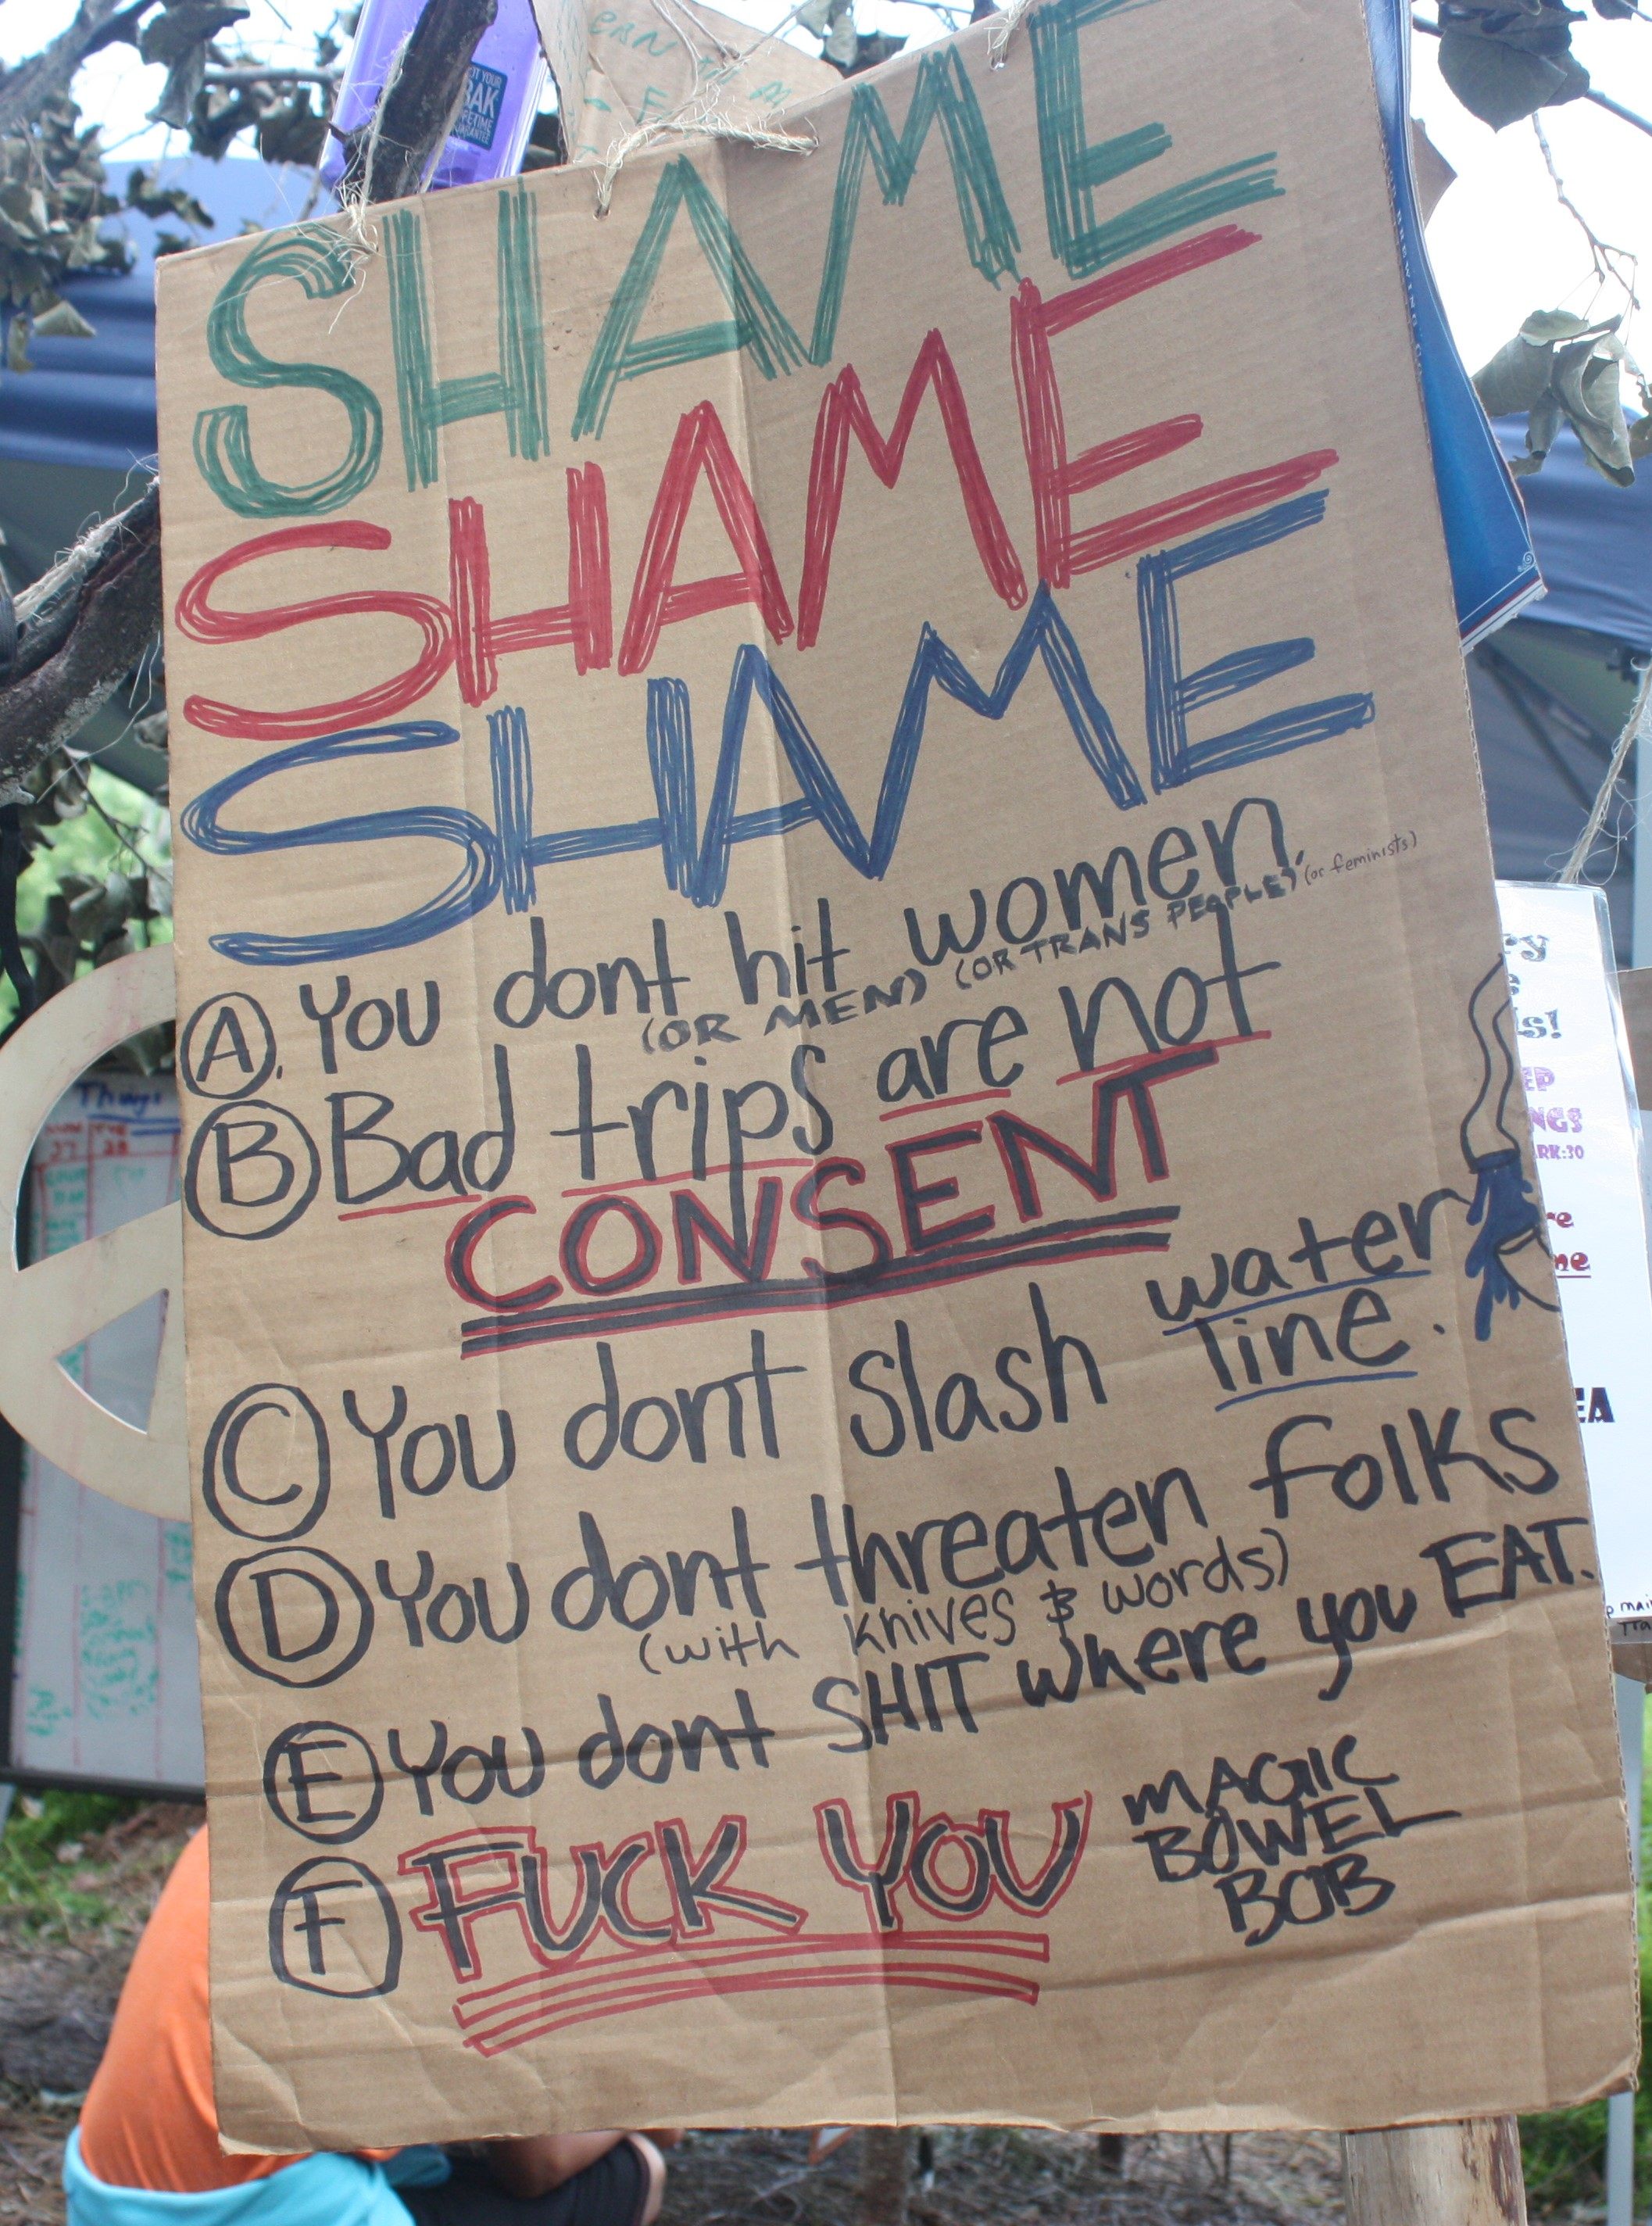 SHAME
SHAME
SHAME
A. You dont hit women,
(OR MEN) (OR TRANS PEOPLE) (or feminists)
B Bad trips are not
CONSENT
C You dont slash water
line.
D You dont threaten folks
(with knives & words)
E You dont SHIT where you EAT.
F FUCK YOU
MAGIC
BOWEL
BOB
Things